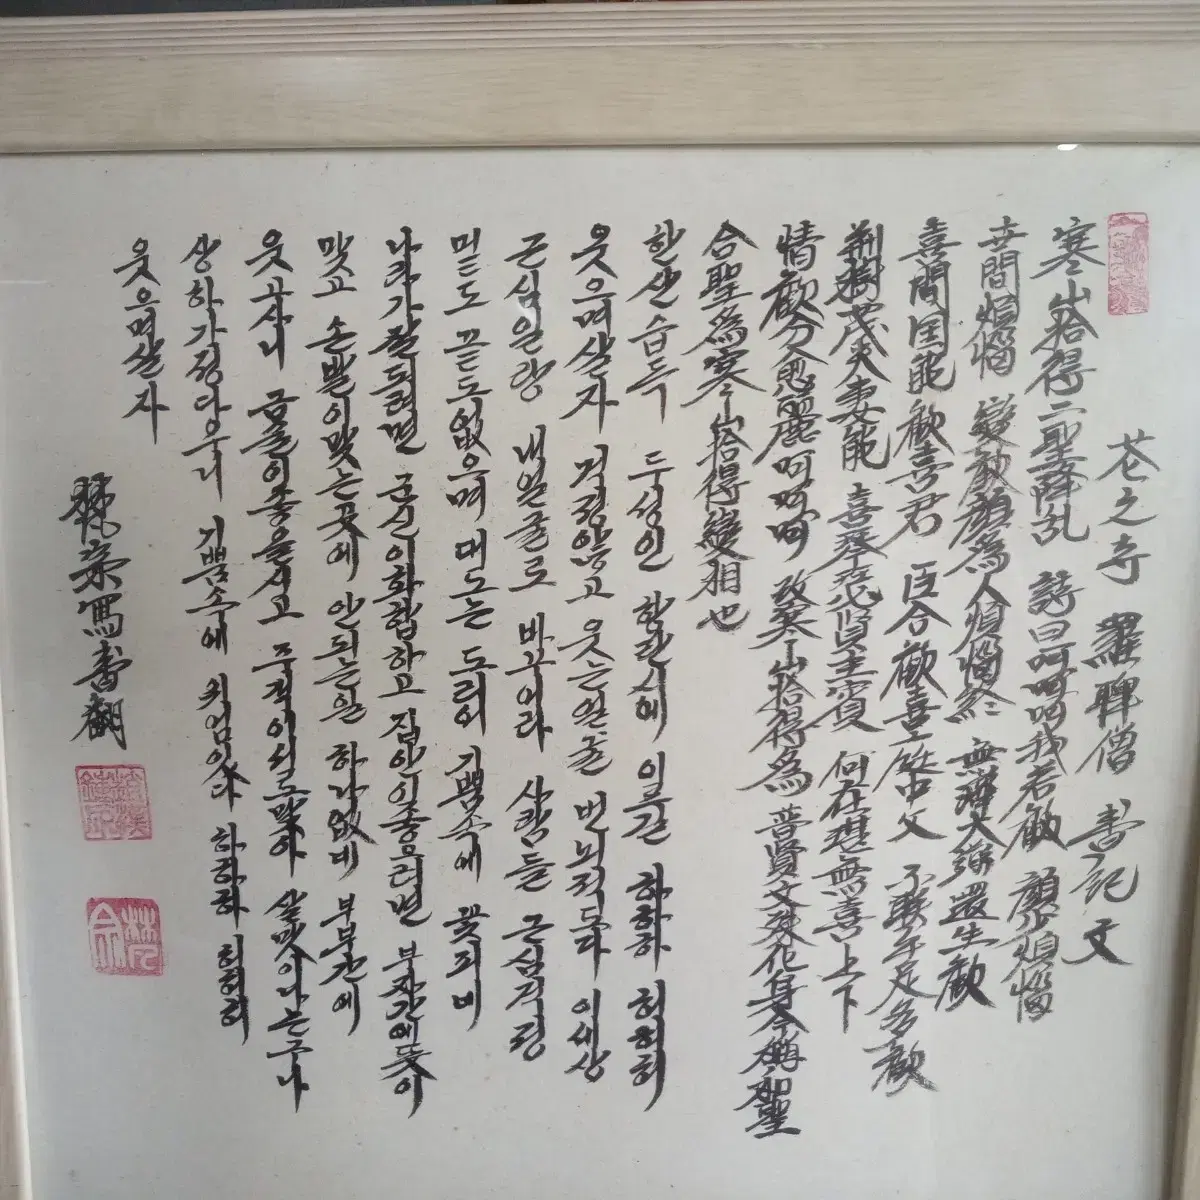 花之寺 羅聃僧 書記文
寒山拾得二聖降乱 詩曰呵呵呵我若歡 顔少煩惱
世間煩惱 變歡顔為 人煩惱終 無濟大 還生歡
喜間国能歡喜君 臣合歡喜 中父 子 足多歡
荊樹茂夫妻能 喜琴 賢主賓 何在堪無喜上下
情歡分愈麗呵呵呵 改寒山拾得為 普賢文殊化身今稱和聖
合聖爲寒山拾得變相也
한산습득 두성인 환란시에 이르길 하하하 허허허
웃으며살자 걱정않고 웃는얼굴 번뇌적다 이세상
근심일랑 내얼굴로 바꾸어라 사람들 근심걱정
밑도 끝도없으며 대도는 도리어 기쁨속에 꽃피네
나라가잘되려면 군신이화합하고 집안이좋으려면 부자간에뜻이
맞고 손발이맞는곳에 안되는일 하나없네 부부간에
웃고사니 금슬이좋을시고 주객이서로맞아 살맛이나는구나
상하가정다우니 기쁨속에 위엄있다 하하하 허허허
웃으며살자